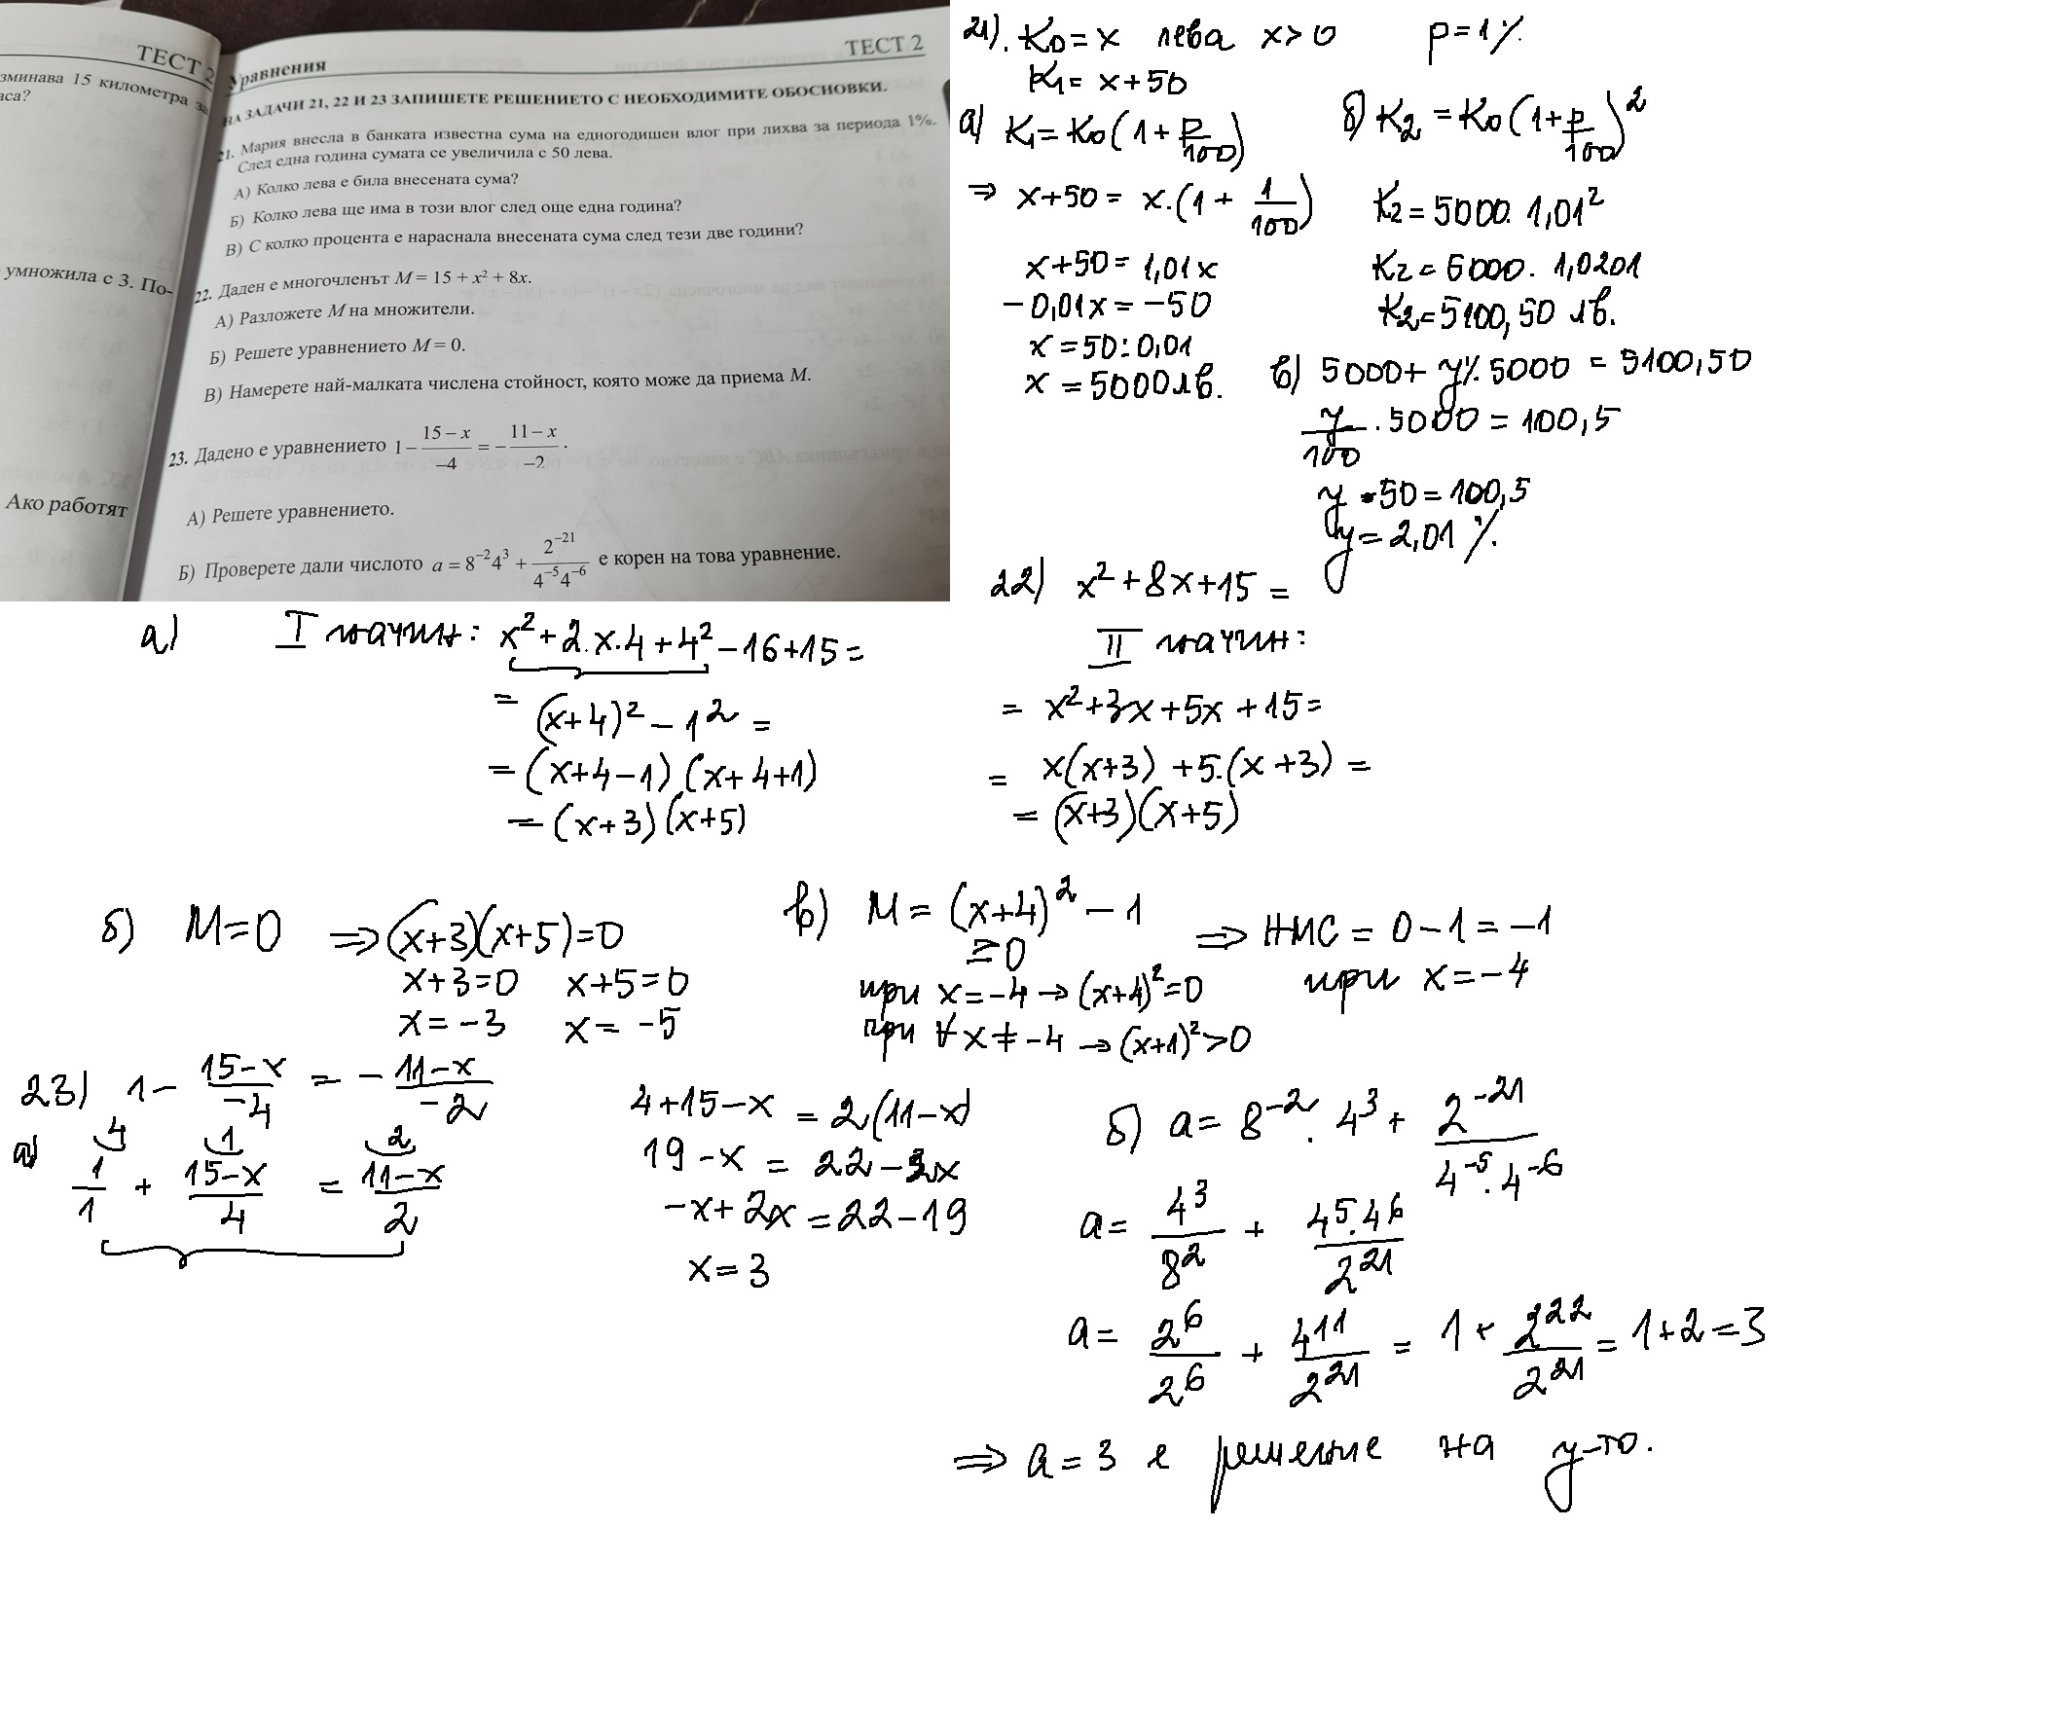 ТЕСТ 2
зминава 15 километра за
аса?
умножила с 3. По-
Ако работят
Уравнения
ТЕСТ 2
НА ЗАДАЧИ 21, 22 И 23 ЗАПИШЕТЕ РЕШЕНИЕТО С НЕОБХОДИМИТЕ ОБОСНОВКИ.
21. Мария внесла в банката известна сума на едногодишен влог при лихва за периода 1%.
След една година сумата се увеличила с 50 лева.
А) Колко лева е била внесената сума?
Б) Колко лева ще има в този влог след още една година?
В) С колко процента е нараснала внесената сума след тези две години?
22. Даден е многочленът M = 15 + x² + 8x.
А) Разложете M на множители.
Б) Решете уравнението M = 0.
В) Намерете най-малката числена стойност, която може да приема M.
23. Дадено е уравнението 1 − (15 − x)/(−4) = −(11 − x)/(−2).
А) Решете уравнението.
Б) Проверете дали числото a = 8⁻²4³ + 2⁻²¹/(4⁻⁵4⁻⁶) е корен на това уравнение.
21). K₀ = x лева x > 0 p = 1%
K₁ = x + 50
а) K₁ = K₀(1 + p/100)
⇒ x + 50 = x.(1 + 1/100)
x + 50 = 1,01x
−0,01x = −50
x = 50 : 0,01
x = 5000 лв.
б) K₂ = K₀(1 + p/100)²
K₂ = 5000. 1,01²
K₂ = 5000. 1,0201
K₂ = 5100,50 лв.
в) 5000 + y%.5000 = 5100,50
y/100 . 5000 = 100,5
y . 50 = 100,5
y = 2,01 %.
22) x² + 8x + 15 =
а) I начин: x² + 2.x.4 + 4² − 16 + 15 =
= (x+4)² − 1² =
= (x+4−1) (x+4+1)
= (x+3) (x+5)
II начин:
= x² + 3x + 5x + 15 =
= x(x+3) + 5.(x+3) =
= (x+3)(x+5)
б) M = 0 ⇒ (x+3)(x+5) = 0
x+3=0 x+5=0
x = −3 x = −5
в) M = (x+4)² − 1 ⇒ НМС = 0 − 1 = −1
≥ 0 при x = −4
при x = −4 → (x+4)² = 0
при ∀ x ≠ −4 → (x+1)² > 0
23) 1 − (15−x)/(−4) = −(11−x)/(−2)
4 1 2
а) 1/1 + (15−x)/4 = (11−x)/2
4 + 15 − x = 2(11−x)
19 − x = 22 − 2x
−x + 2x = 22 − 19
x = 3
б) a = 8⁻² . 4³ + 2⁻²¹/(4⁻⁵.4⁻⁶)
a = 4³/8² + 4⁵.4⁶/2²¹
a = 2⁶/2⁶ + 4¹¹/2²¹ = 1 + 2²²/2²¹ = 1 + 2 = 3
⇒ a = 3 е решение на у-то.